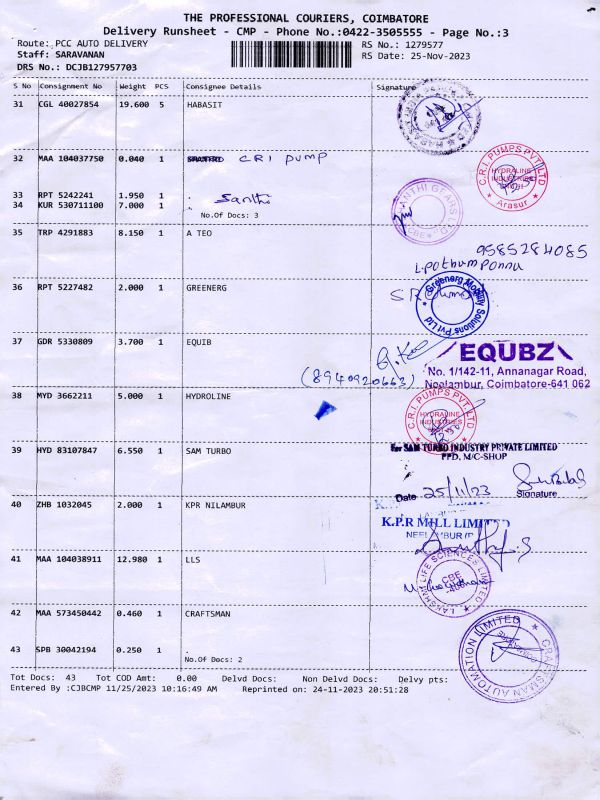 THE PROFESSIONAL COURIERS, COIMBATORE
Delivery Runsheet - CMP - Phone No.:0422-3505555 - Page No.:3
Route: PCC AUTO DELIVERY RS No.: 1279577
Staff: SARAVANAN RS Date: 25-Nov-2023
DRS No.: DCJB127957703
S No Consignment No Weight PCS Consignee Details Signature
31 CGL 40027854 19.600 5 HABASIT
32 MAA 104037750 0.040 1 C.R.I PUMP
C.R.I. PUMPS PVT. LTD
HYDRALINE
INDUSTRIES
Arasur
33 RPT 5242241 1.950 1 . Santhi
34 KUR 530711100 7.000 1 .
No.Of Docs: 3
SHANTHI GEARS LTD
CBE
35 TRP 4291883 8.150 1 A TEO
9585284085
36 RPT 5227482 2.000 1 GREENERG
Greenerg Mobility Solutions Pvt Ltd
37 GDR 5330809 3.700 1 EQUIB
EQUBZ
No. 1/142-11, Annanagar Road,
Neelambur, Coimbatore-641 062
(8940920663)
38 MYD 3662211 5.000 1 HYDROLINE
C.R.I. PUMPS PVT. LTD
HYDRALINE
INDUSTRIES
39 HYD 83107847 6.550 1 SAM TURBO
For SAM TURBO INDUSTRY PRIVATE LIMITED
PPD, M/C-SHOP
Date 25/11/23 Signature
40 ZHB 1032045 2.000 1 KPR NILAMBUR
K.P.R MILL LIMITED
41 MAA 104038911 12.980 1 LLS
LAKSHMI LIFE SCIENCES LIMITED
CBE
42 MAA 573450442 0.460 1 CRAFTSMAN
43 SPB 30042194 0.250 1 .
No.Of Docs: 2
CRAFTSMAN AUTOMATION LIMITED
Tot Docs: 43 Tot COD Amt: 0.00 Delvd Docs: Non Delvd Docs: Delvy pts:
Entered By :CJBCMP 11/25/2023 10:16:49 AM Reprinted on: 24-11-2023 20:51:28